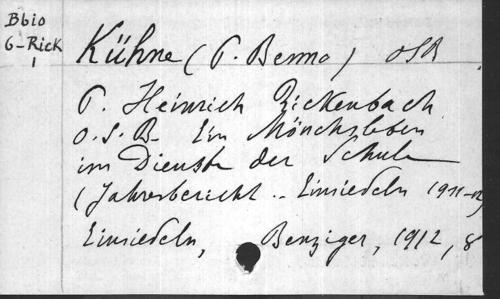 Bbio
6-Rick
1
Kühne (P. Benno) OSB
P. Heinrich Rickenbach
O.S.B. Ein Mönchsleben
im Dienste der Schule
(Jahresbericht .. Einsiedeln 1911-12)
Einsiedeln, Benziger, 1912, 8